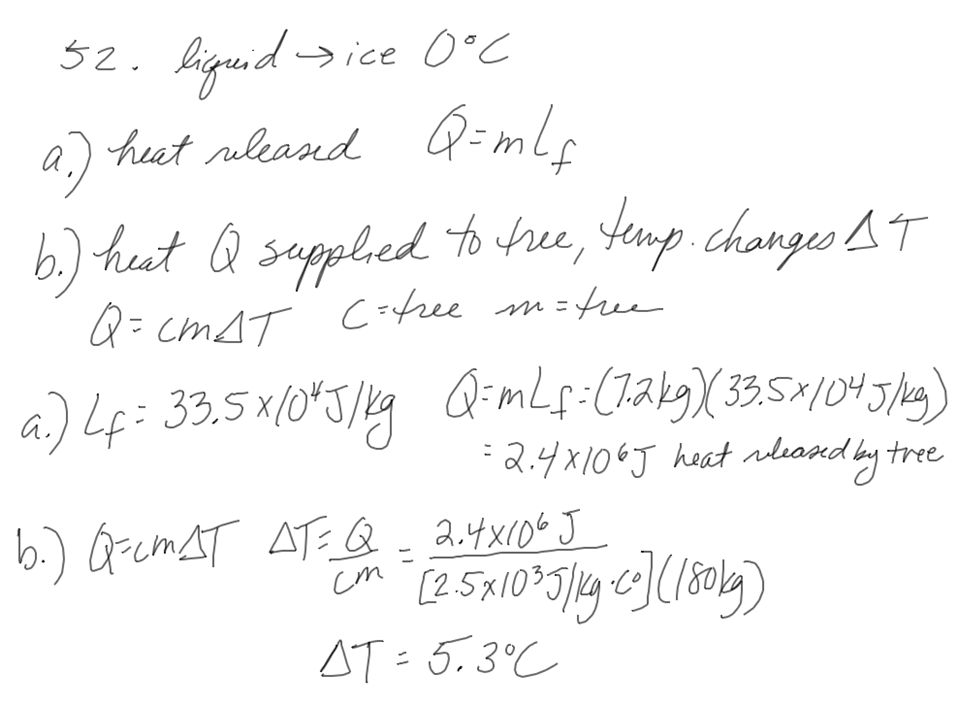 52. liquid → ice 0°C
a.) heat released Q=mLf
b.) heat Q supplied to tree, temp. changes ΔT
Q=cmΔT C=tree m=tree
a.) Lf = 33.5x10⁴J/kg Q=mLf=(7.2kg)(33.5x10⁴J/kg)
= 2.4x10⁶J heat released by tree
b.) Q=cmΔT ΔT=Q/cm = 2.4x10⁶J/[2.5x10³J/kg·C°](180kg)
ΔT = 5.3°C